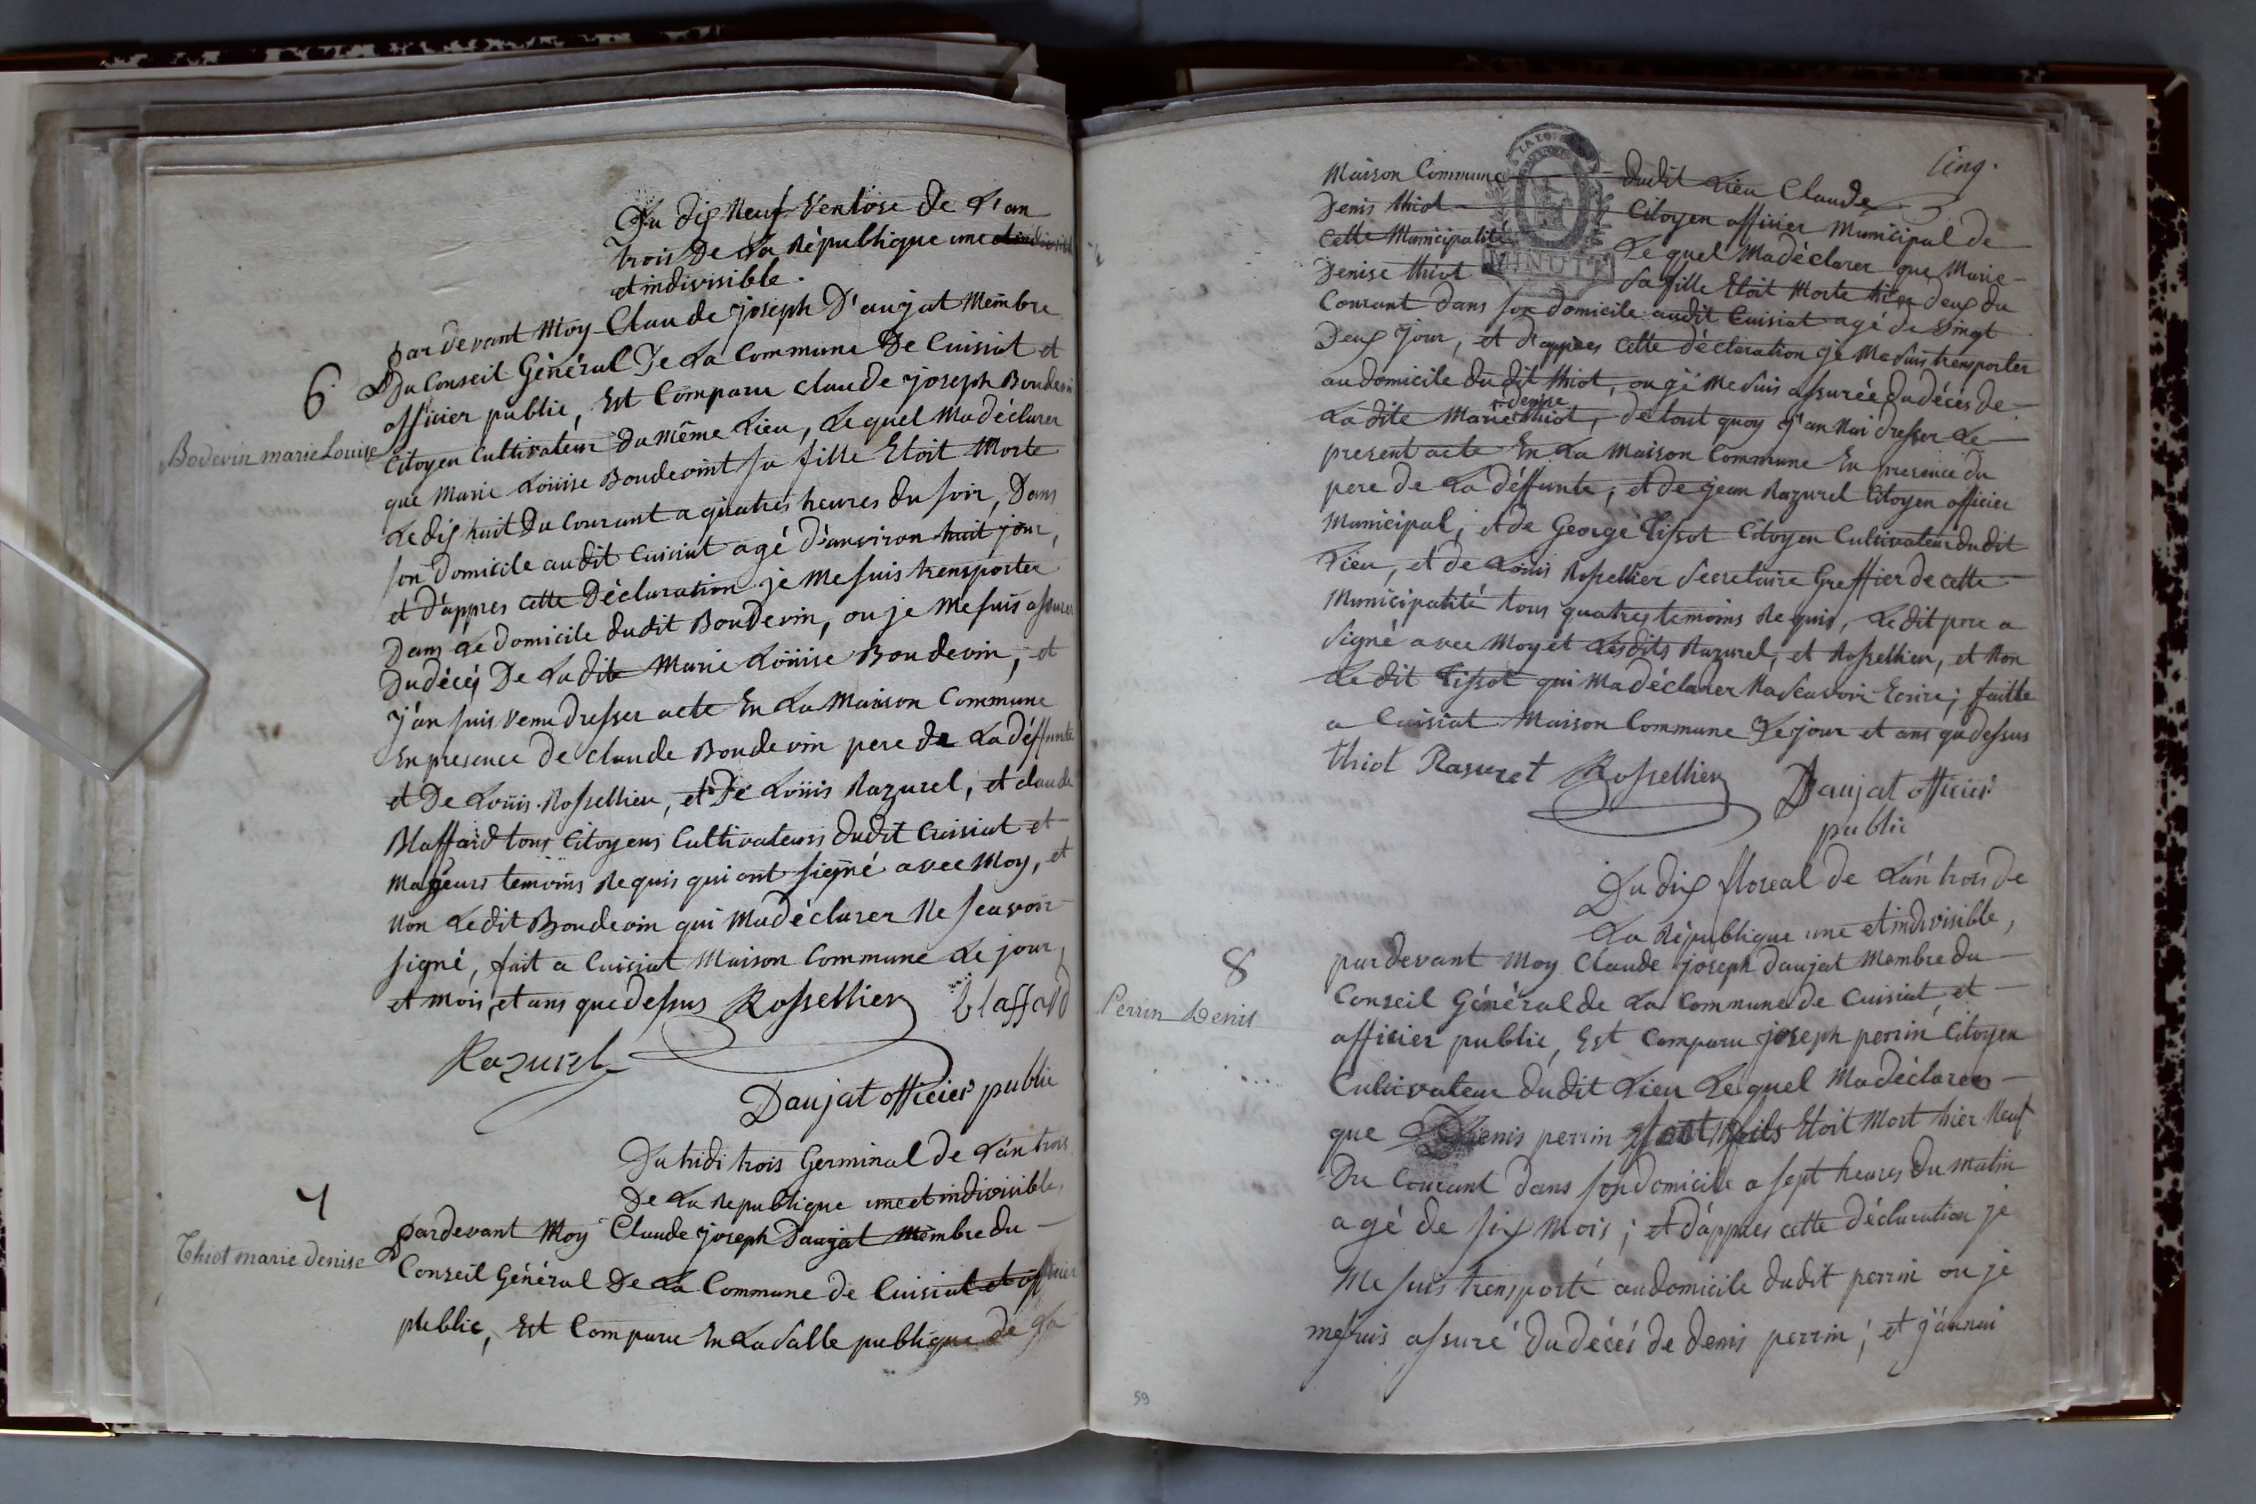 Du dix Neuf Ventôse de L'an
trois De La République une et indivisible
et indivisible.
6
Bodevin marie Louise
pardevant Moy Claude joseph D'aujat Membre
Du Conseil Général De La Commune De Cuisiat et
officier public, Est Comparu claude joseph Boudevin
Citoyen Cultivateur Du Même Lieu, Lequel Ma déclarer
que Marie Loüise Boudevint sa fille Etoit Morte
Le dix huit Du Courant a quatres heures du soir, Dans
son Domicile audit Cuisiat agé d'anviron huit jour,
et d'appres cette Déclaration je Me suis transporter
Dans Le domicile dudit Boudevin, ou je Me suis assurer
Du décès De Ladite Marie Loüise Boudevin, et
j'an suis venu dresser acte En La Maison Commune
En presence de claude Boudevin pere de La déffunte
et De Loüis Rossellier, et De Loüis Razurel, et claude
Blaffard tous Citoyens Cultivateurs dudit Cuisiat et
Mageurs temoins Requis qui ont signé avec Moy, et
Non Ledit Boudevin qui Ma déclarer Ne scavoir
signé, fait a Cuisiat Maison Commune Le jour,
et Mois, et ans que dessus Rossellier blaffard
Razurel
Daujat officier public
Du tridi trois Germinal de L'an trois
De La Republique une et indivisible,
7
Thiot marie denise
pardevant Moy Claude joseph Daujat Membre du
Conseil Général De La Commune de Cuisiat et officier
public, Est Comparu En La Salle publique de La
Cinq.
Maison Commune dudit Lieu Claude
Denis thiot Citoyen officier Municipal de
Cette Municipalité Lequel Ma déclarer que Marie
MINUTE
Denise thiot Sa fille Etoit Morte hier deux du
Courant dans son domicile audit Cuisiat agé de Vingt
Deux Jour, et d'appres cette déclaration je Me suis transporter
au domicile dudit thiot, ou je Me suis assurée du décès de
denise
La dite Marie thiot, de tout quoy j'an Nai dresser Le
present acte En La Maison Commune En presence du
pere de La déffunte, et de jean Razurel Citoyen officier
Municipal, et de George Tissot Citoyen Cultivateur dudit
Lieu, et de Loüis Rossellier Secretaire Greffier de cette
Municipalité tous quatres temoins Requis, Ledit pere a
Signé avec Moy et Lesdits Razurel, et Rossellier, et Non
Le dit Tissot qui Ma déclarer Na Scavoir Ecrire; faitte
a Cuisiat Maison Commune Le jour et ans que dessus
thiot Rasuret Rossellier Daujat officier
public
Du dix floreal de L'an trois de
La République une et indivisible,
8
Perrin Denis
pardevant Moy Claude joseph Daujat Membre du
Conseil Général de La Commune de Cuisiat et
officier public, Est Comparu joseph perrin Citoyen
Cultivateur dudit Lieu Lequel Ma déclarer
que Denis perrin fils Etoit Mort hier Neuf
Du Courant dans son domicile a sept heures Du Matin
agé de six Mois; et d'appres cette déclaration je
Me suis transporté au domicile dudit perrin ou je
me suis assuré du décés de denis perrin; et j'an nai
59